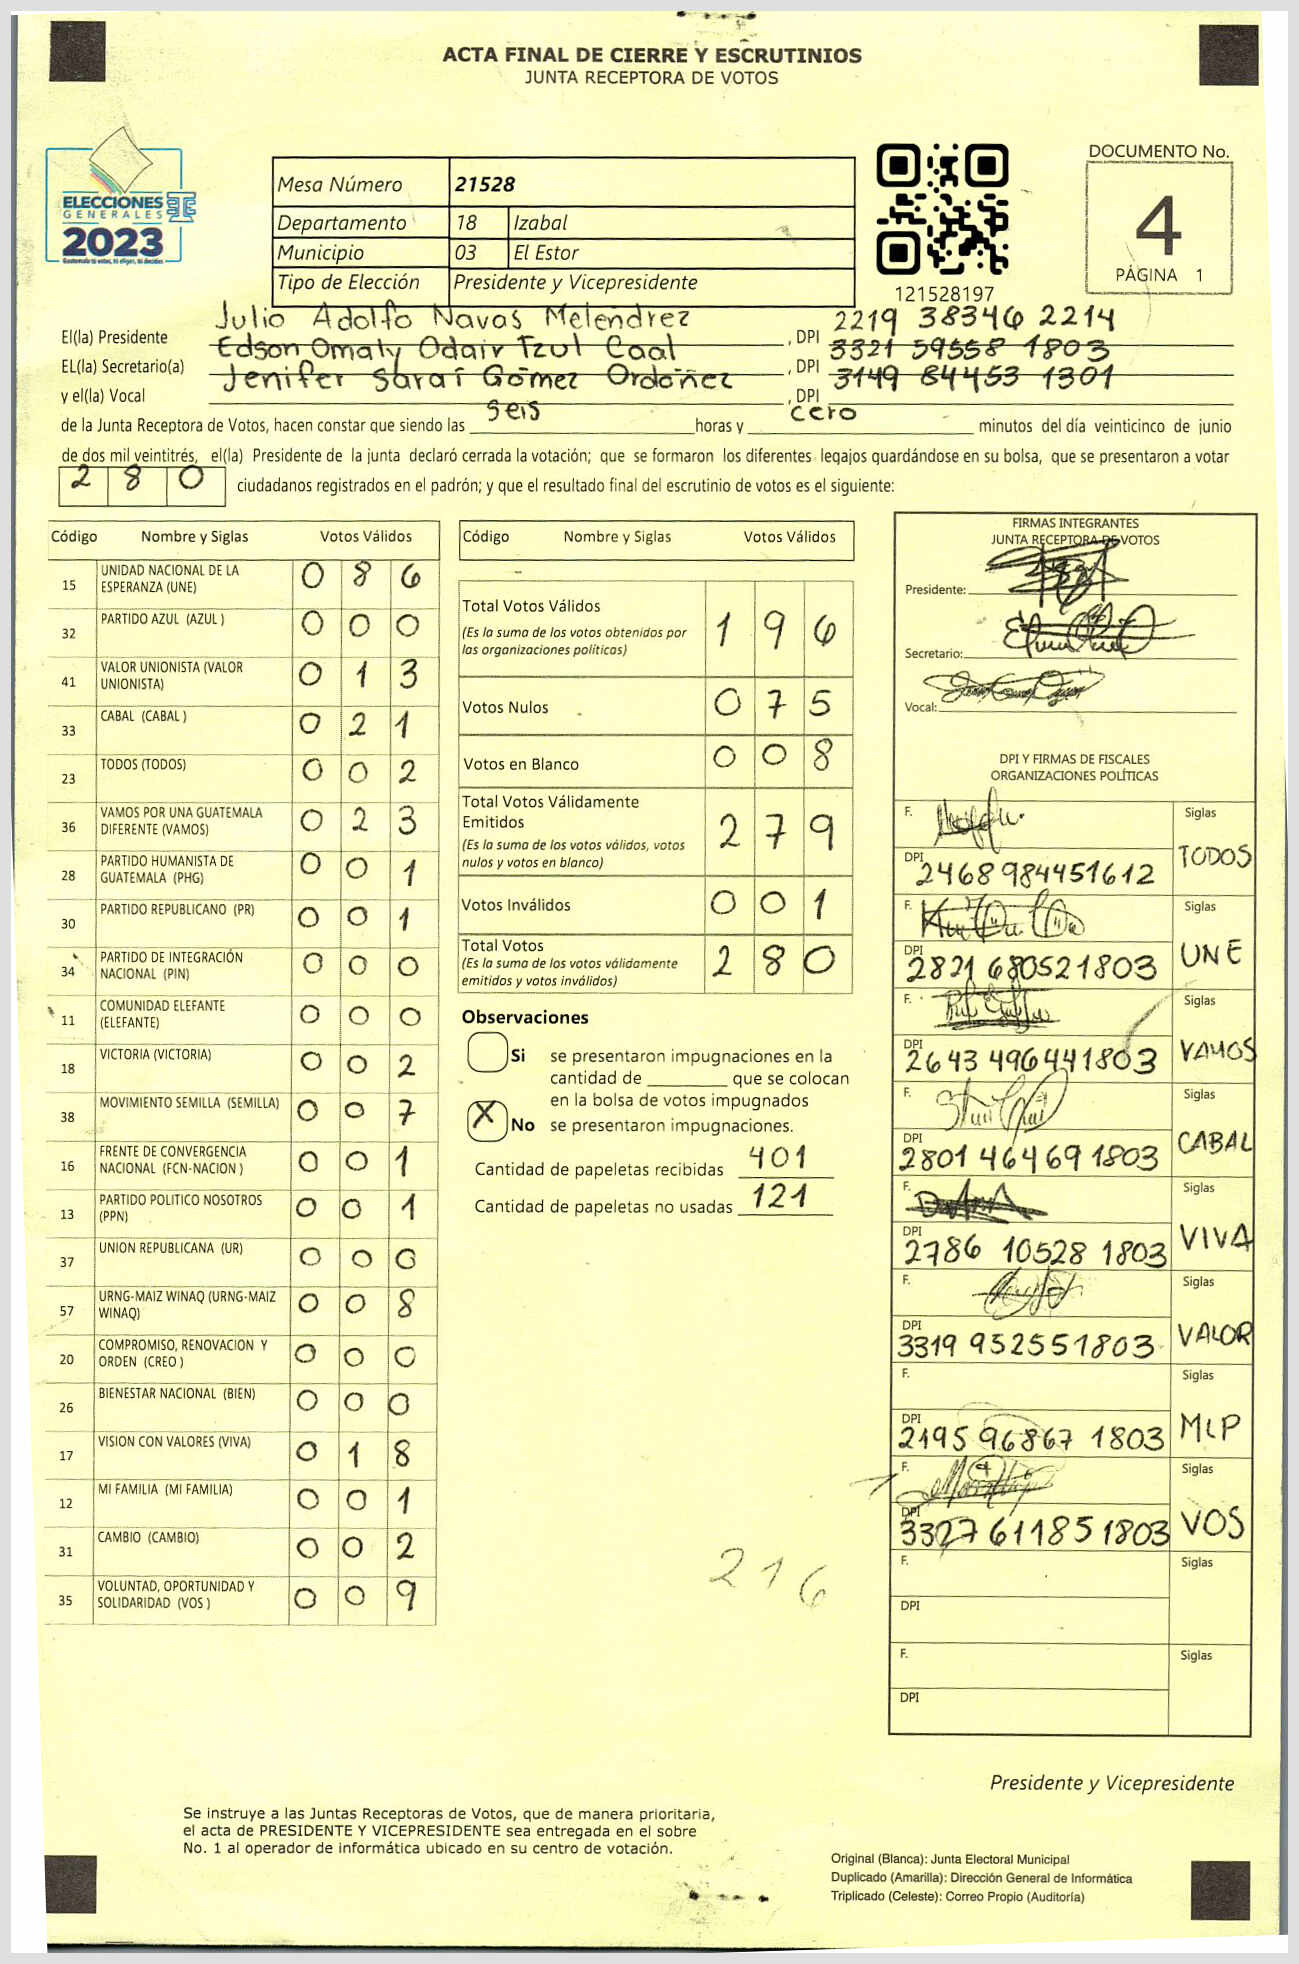 ACTA FINAL DE CIERRE Y ESCRUTINIOS
JUNTA RECEPTORA DE VOTOS
ELECCIONES
GENERALES
2023
Mesa Número 21528
Departamento 18 Izabal
Municipio 03 El Estor
Tipo de Elección Presidente y Vicepresidente
121528197
DOCUMENTO No.
4
PÁGINA 1
El(la) Presidente Julio Adolfo Navas Melendrez, DPI 2219 38346 2214
EL(la) Secretario(a) Edson Omaly Odair Tzul Caal, DPI 3321 59558 1803
y el(la) Vocal Jenifer Saraí Gómez Ordoñez, DPI 3149 84453 1301
de la Junta Receptora de Votos, hacen constar que siendo las seis horas y cero minutos del día veinticinco de junio
de dos mil veintitrés, el(la) Presidente de la junta declaró cerrada la votación; que se formaron los diferentes legajos guardándose en su bolsa, que se presentaron a votar
280 ciudadanos registrados en el padrón; y que el resultado final del escrutinio de votos es el siguiente:
Código Nombre y Siglas Votos Válidos
15 UNIDAD NACIONAL DE LA ESPERANZA (UNE) 0 8 6
32 PARTIDO AZUL (AZUL ) 0 0 0
41 VALOR UNIONISTA (VALOR UNIONISTA) 0 1 3
33 CABAL (CABAL ) 0 2 1
23 TODOS (TODOS) 0 0 2
36 VAMOS POR UNA GUATEMALA DIFERENTE (VAMOS) 0 2 3
28 PARTIDO HUMANISTA DE GUATEMALA (PHG) 0 0 1
30 PARTIDO REPUBLICANO (PR) 0 0 1
34 PARTIDO DE INTEGRACIÓN NACIONAL (PIN) 0 0 0
11 COMUNIDAD ELEFANTE (ELEFANTE) 0 0 0
18 VICTORIA (VICTORIA) 0 0 2
38 MOVIMIENTO SEMILLA (SEMILLA) 0 0 7
16 FRENTE DE CONVERGENCIA NACIONAL (FCN-NACION ) 0 0 1
13 PARTIDO POLITICO NOSOTROS (PPN) 0 0 1
37 UNION REPUBLICANA (UR) 0 0 0
57 URNG-MAIZ WINAQ (URNG-MAIZ WINAQ) 0 0 8
20 COMPROMISO, RENOVACION Y ORDEN (CREO ) 0 0 0
26 BIENESTAR NACIONAL (BIEN) 0 0 0
17 VISION CON VALORES (VIVA) 0 1 8
12 MI FAMILIA (MI FAMILIA) 0 0 1
31 CAMBIO (CAMBIO) 0 0 2
35 VOLUNTAD, OPORTUNIDAD Y SOLIDARIDAD (VOS ) 0 0 9
Código Nombre y Siglas Votos Válidos
Total Votos Válidos 1 9 6
(Es la suma de los votos obtenidos por
las organizaciones políticas)
Votos Nulos 0 7 5
Votos en Blanco 0 0 8
Total Votos Válidamente
Emitidos 2 7 9
(Es la suma de los votos válidos, votos
nulos y votos en blanco)
Votos Inválidos 0 0 1
Total Votos 2 8 0
(Es la suma de los votos válidamente
emitidos y votos inválidos)
Observaciones
Si se presentaron impugnaciones en la
cantidad de ________ que se colocan
en la bolsa de votos impugnados
X No se presentaron impugnaciones.
Cantidad de papeletas recibidas 401
Cantidad de papeletas no usadas 121
216
FIRMAS INTEGRANTES
JUNTA RECEPTORA DE VOTOS
Presidente:
Secretario:
Vocal:
DPI Y FIRMAS DE FISCALES
ORGANIZACIONES POLÍTICAS
F. Siglas
DPI 2468 984451612 TODOS
F. Siglas
DPI 2821 680521803 UNE
F. Siglas
DPI 2643 496441803 VAMOS
F. Siglas
DPI 2801 46469 1803 CABAL
F. Siglas
DPI 2786 10528 1803 VIVA
F. Siglas
DPI 3319 952551803 VALOR
F. Siglas
DPI 2195 96867 1803 MLP
F. Siglas
DPI 3327 611851803 VOS
F. Siglas
DPI
F. Siglas
DPI
Presidente y Vicepresidente
Se instruye a las Juntas Receptoras de Votos, que de manera prioritaria,
el acta de PRESIDENTE Y VICEPRESIDENTE sea entregada en el sobre
No. 1 al operador de informática ubicado en su centro de votación.
Original (Blanca): Junta Electoral Municipal
Duplicado (Amarilla): Dirección General de Informática
Triplicado (Celeste): Correo Propio (Auditoría)